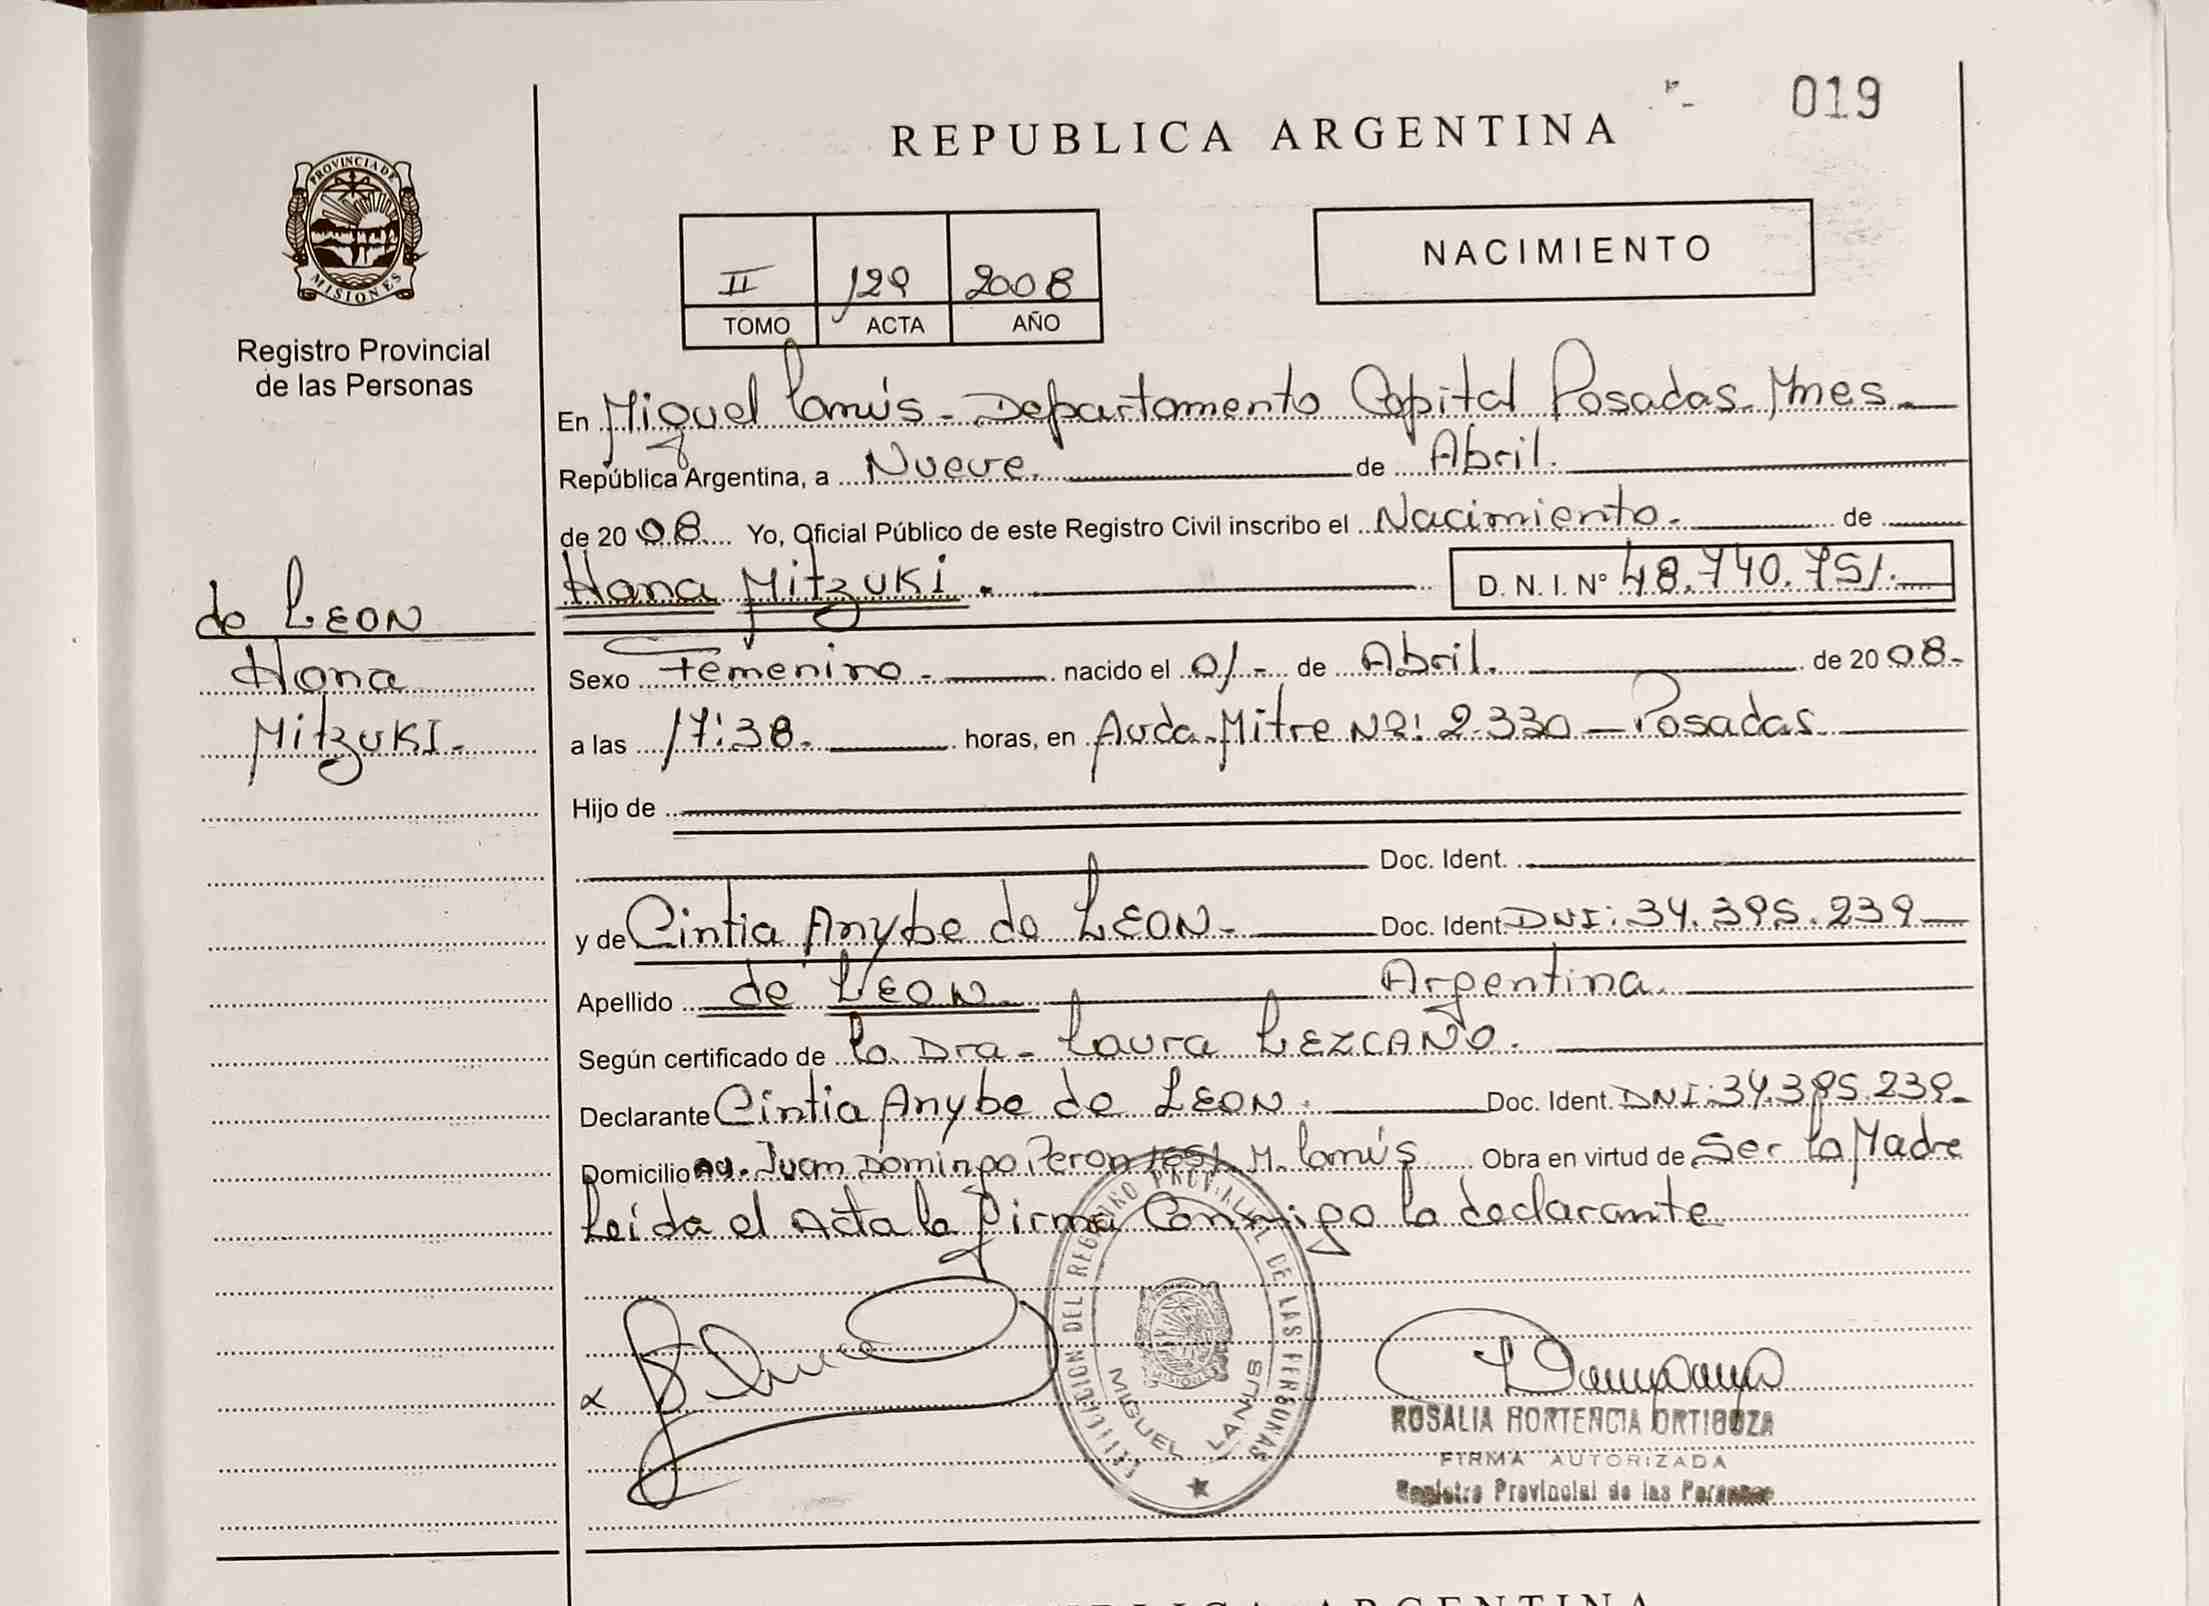 019
REPUBLICA ARGENTINA
PROVINCIA DE
MISIONES
Registro Provincial
de las Personas
II 129 2008
TOMO ACTA AÑO
NACIMIENTO
En Miguel Lanús - Departamento Capital Posadas Mnes -
República Argentina, a Nueve. de Abril.
de 2008 Yo, Oficial Público de este Registro Civil inscribo el Nacimiento. de
Hana Mitzuki. D. N. I. N° 48.740.751.
de LEON
Hana
Mitzuki.-
Sexo Femenino. nacido el 01.- de Abril. de 2008.-
a las 17:38. horas, en Avda. Mitre Nº: 2.330 - Posadas.
Hijo de
Doc. Ident.
y de Cintia Anybe de LEON. Doc. Ident. DNI: 34.395.239
Apellido de LEON. Argentina.
Según certificado de la Dra. Laura LEZCANO.
Declarante Cintia Anybe de LEON. Doc. Ident. DNI: 34.395.239.
Domicilio Av. Juan Domingo Peron 1651 M. Lanús Obra en virtud de Ser la Madre
Leída el Acta la firma Conmigo la declarante
DEL REGISTRO PROVINCIAL DE LAS PERSONAS
MISIONES
MIGUEL LANUS
ROSALIA HORTENCIA ORTIGOZA
FIRMA AUTORIZADA
Registro Provincial de las Personas